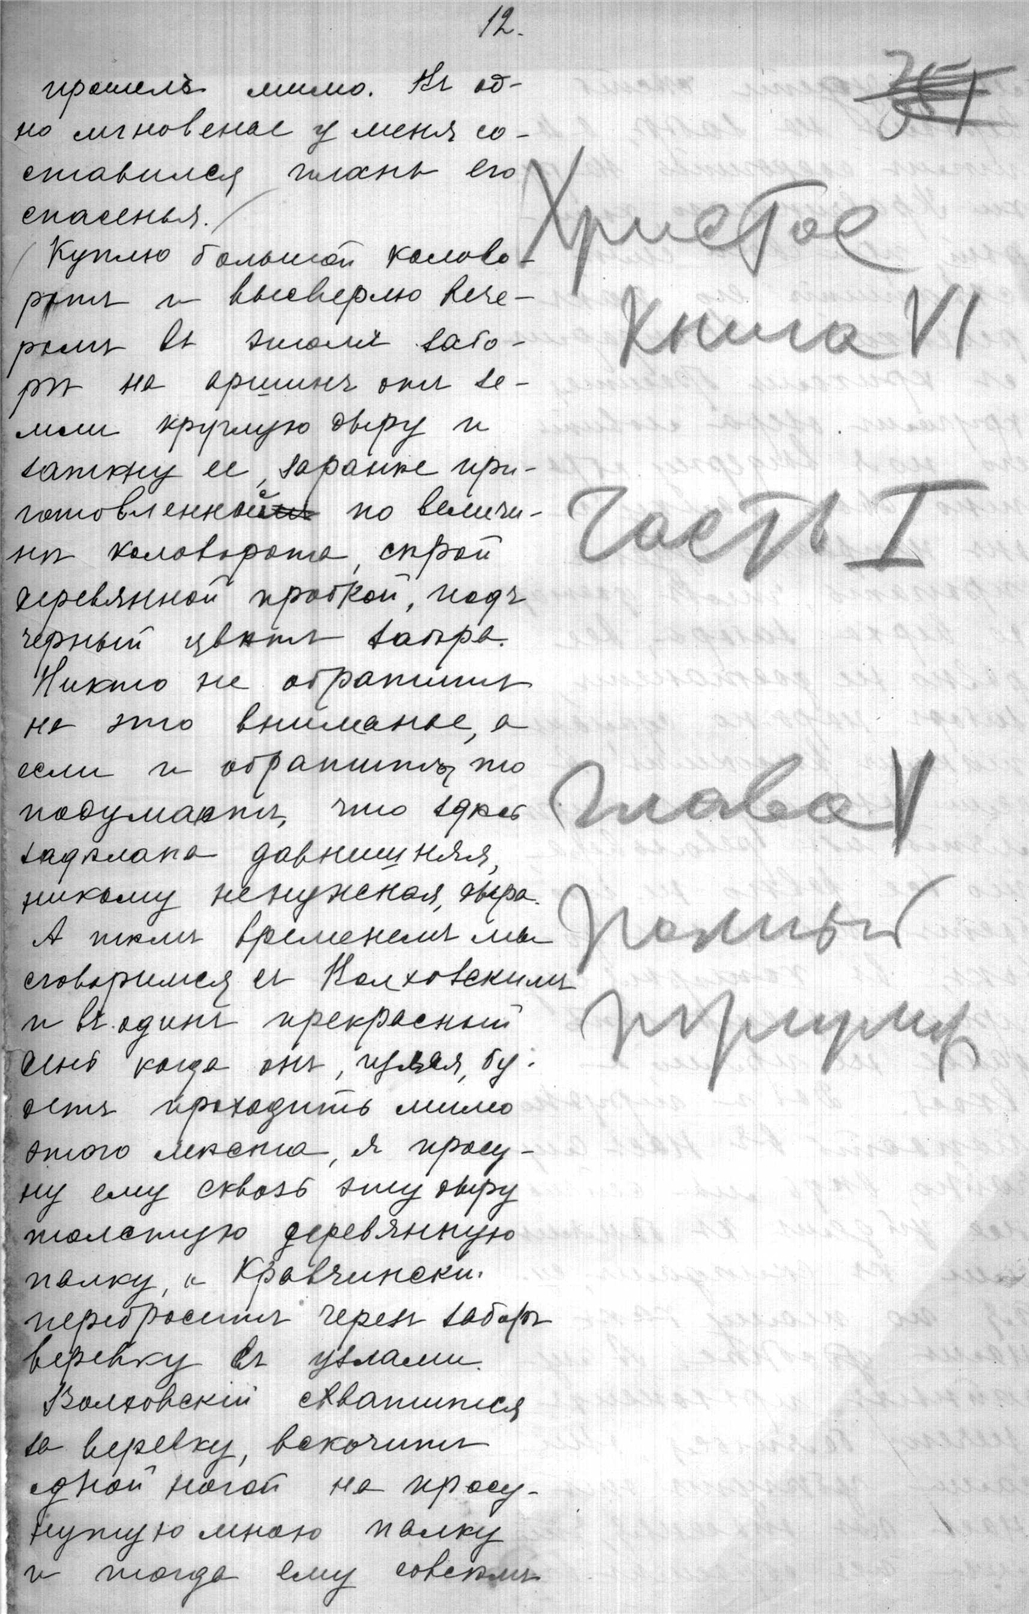 12.
прошелъ мимо. Въ од-
но мгновенье у меня со-
ставился планъ его
спасенья.
Куплю большой колово-
ротъ и высверлю вече-
ромъ въ этомъ забо-
рѣ на аршинъ отъ зе-
мли круглую дыру и
заткну ее, заранѣе при-
готовленной по величи-
нѣ коловорота, сѣрой
деревянной пробкой, подъ
черный цвѣтъ забора.
Никто не обратитъ
на это вниманье, а
если и обратитъ, то
подумаетъ, что здѣсь
задѣлана давнишняя,
никому ненужная, дыра.
А тѣмъ временемъ мы
сговоримся съ Волховскимъ
и въ одинъ прекрасный
день когда онъ, гуляя, бу-
детъ проходить мимо
этого мѣста, я просу-
ну ему сквозь эту дыру
толстую деревянную
палку, и Кравчински.
переброситъ черезъ заборъ
веревку съ узлами.
Волховскій схватится
за веревку, вскочитъ
одной ногой на просу-
нутую мною палку
и тогда ему совсѣмъ
Христос
Книга VI
Часть I
Глава V